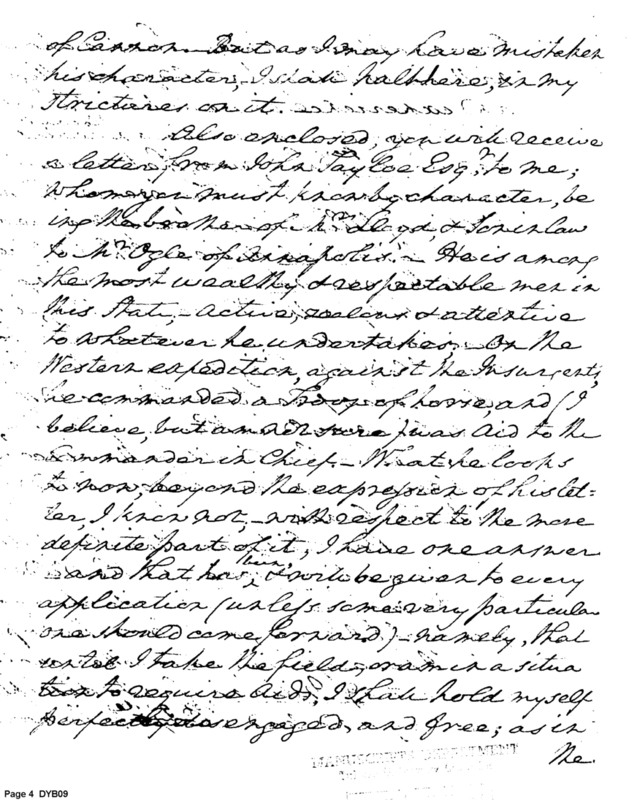 of Cannon. But as I may have mistaken
his character, I shall halt here, in my
strictures on it.
Also enclosed, you will receive
a letter from John Tayloe Esqr. to me;
whom you must know by character, be
ing the brother of Mrs Lloyd, & Son in law
to Mr. Ogle of Annapolis. – He is among
the most wealthy & respectable men in
this State, – active, zealous & attentive
to whatever he undertakes. – On the
Western expedition, against the Insurgents,
he commanded a Troop of horse, and (I
believe, but am not sure) was Aid to the
Commander in Chief. – What he looks
to now, beyond the expression of his let=
ter, I know not, – with respect to the more
definite part of it, I have one answer
– and that has, been, & will be given to every
application (unless some very particular
one should come forward) – namely, that
until I take the field, or am in a situa
tion to require Aids, I shall hold myself
perfectly disengaged, and free; as in
the
MANUSCRIPTS DEPARTMENT
Page 4 DYB09